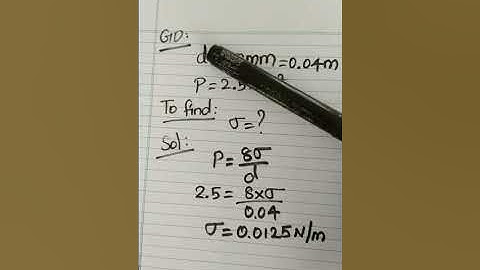 GD:
d mm = 0.04m
P = 2.5
To find:
σ = ?
Sol:
P = 8σ/d
2.5 = 8×σ/0.04
σ = 0.0125 N/m